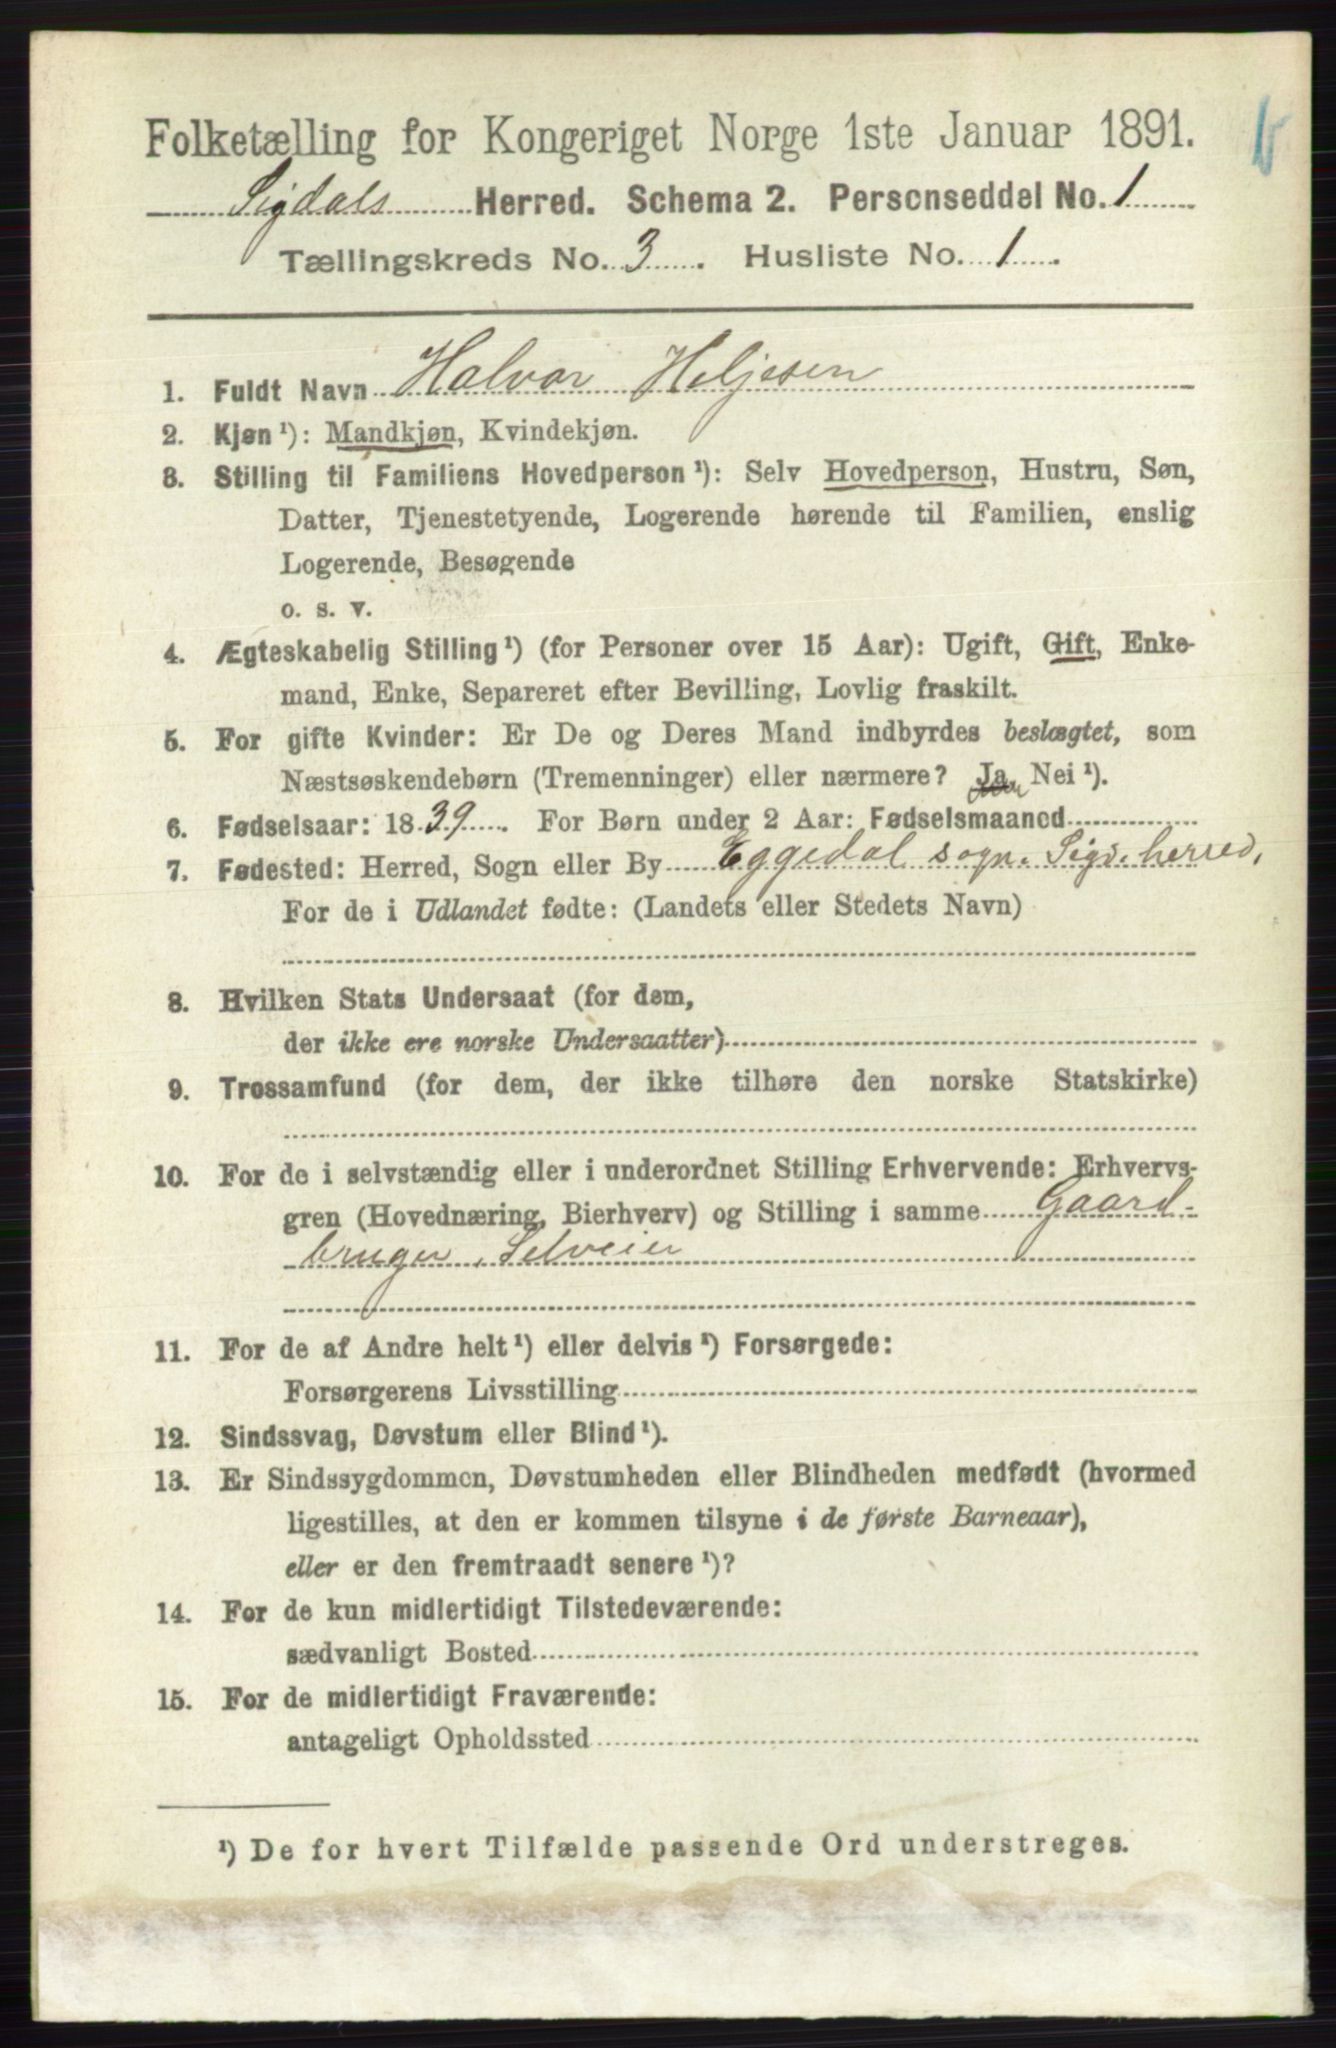 Folketælling for Kongeriget Norge 1ste Januar 1891.
Sigdals Herred. Schema 2. Personseddel No. 1
Tællingskreds No. 3. Husliste No. 1.
1. Fuldt Navn Halvor Heljesen
2. Kjøn¹): Mandkjøn, Kvindekjøn.
3. Stilling til Familiens Hovedperson¹): Selv Hovedperson, Hustru, Søn,
Datter, Tjenestetyende, Logerende hørende til Familien, enslig
Logerende, Besøgende
o. s. v.
4. Ægteskabelig Stilling¹) (for Personer over 15 Aar): Ugift, Gift, Enke-
mand, Enke, Separeret efter Bevilling, Lovlig fraskilt.
5. For gifte Kvinder: Er De og Deres Mand indbyrdes beslægtet, som
Næstsøskendebørn (Tremenninger) eller nærmere? Ja, Nei¹).
6. Fødselsaar: 1839. For Børn under 2 Aar: Fødselsmaaned
7. Fødested: Herred, Sogn eller By Eggedal sogn. Sigd. herred,
For de i Udlandet fødte: (Landets eller Stedets Navn)
8. Hvilken Stats Undersaat (for dem,
der ikke ere norske Undersaatter)
9. Trossamfund (for dem, der ikke tilhøre den norske Statskirke)
10. For de i selvstændig eller i underordnet Stilling Erhvervende: Erhvervs-
gren (Hovednæring, Bierhverv) og Stilling i samme Gaard-
bruger, Selveier
11. For de af Andre helt¹) eller delvis¹) Forsørgede:
Forsørgerens Livsstilling
12. Sindssvag, Døvstum eller Blind¹).
13. Er Sindssygdommen, Døvstumheden eller Blindheden medfødt (hvormed
ligestilles, at den er kommen tilsyne i de første Barneaar),
eller er den fremtraadt senere¹)?
14. For de kun midlertidigt Tilstedeværende:
sædvanligt Bosted
15. For de midlertidigt Fraværende:
antageligt Opholdssted
¹) De for hvert Tilfælde passende Ord understreges.